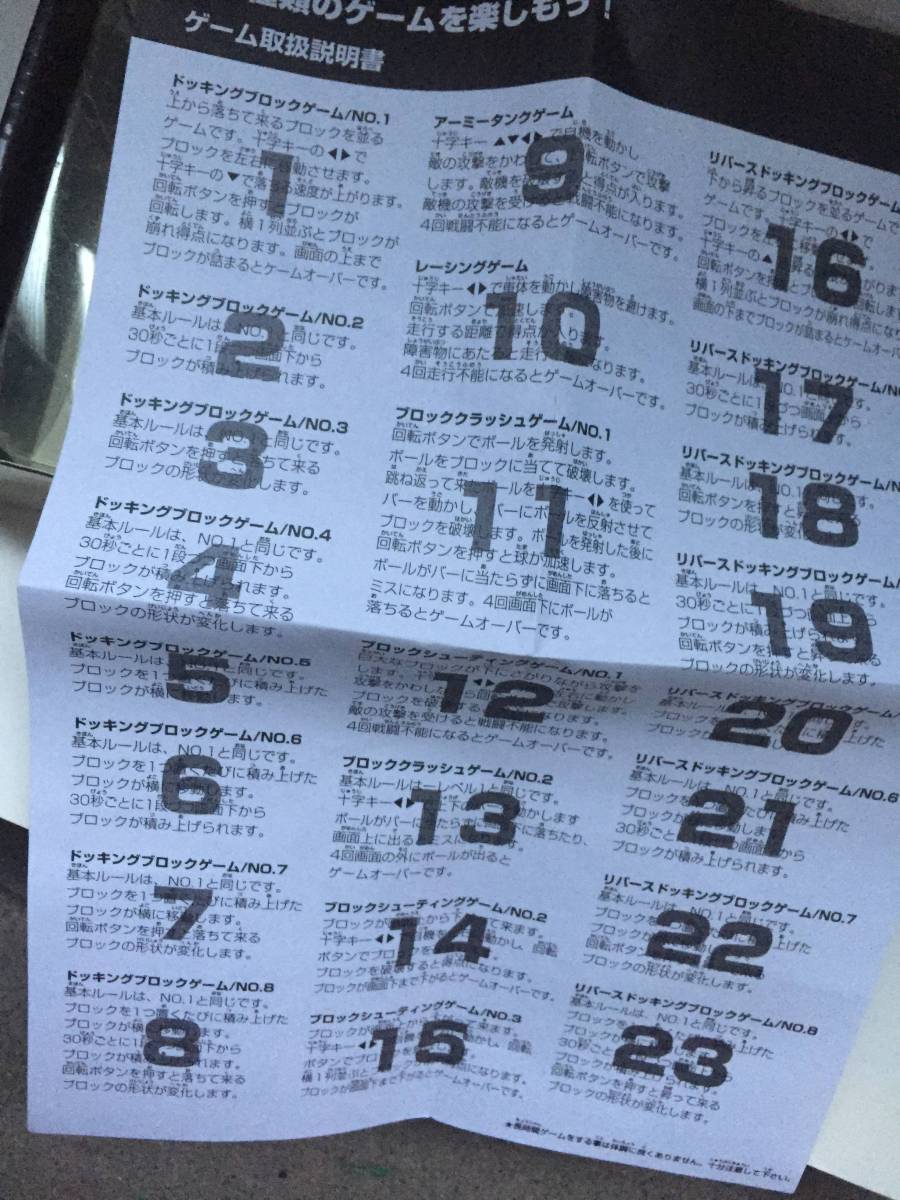 種類のゲームを楽しもう!
ゲーム取扱説明書
ドッキングブロックゲーム/NO.1
上から落ちて来るブロックを並る
ゲームです。十字キーの◀▶で
ブロックを左右 動させます。
十字キーの▼で落 る速度が上がります。
回転ボタンを押す ブロックが
回転します。横1列並ぶとブロックが
崩れ得点になります。画面の上まで
ブロックが詰まるとゲームオーバーです。
1
ドッキングブロックゲーム/NO.2
基本ルールは NO. と同じです。
30秒ごとに1 画面下から
ブロックが積み上げられます。
2
ドッキングブロックゲーム/NO.3
基本ルールは、NO.1と同じです。
回転ボタンを押す 落ちて来る
ブロックの形状が変化します。
3
ドッキングブロックゲーム/NO.4
基本ルールは、NO.1と同じです。
30秒ごとに1段 画面下から
ブロックが積み上げられます。
回転ボタンを押すと落ちて来る
ブロックの形状が変化します。
4
ドッキングブロックゲーム/NO.5
基本ルールは、NO.1と同じです。
ブロックを1つ びに積み上げた
ブロックが横に します。
5
ドッキングブロックゲーム/NO.6
基本ルールは、NO.1と同じです。
ブロックを1つ たびに積み上げた
ブロックが横に移動します。
30秒ごとに1段 画面下から
ブロックが積み上げられます。
6
ドッキングブロックゲーム/NO.7
基本ルールは、NO.1と同じです。
ブロックを1つ たびに積み上げた
ブロックが横に移動します。
回転ボタンを押 と落ちて来る
ブロックの形状が変化します。
7
ドッキングブロックゲーム/NO.8
基本ルールは、NO.1と同じです。
ブロックを1つ置くたびに積み上げた
ブロックが横 ます。
30秒ごとに1 面下から
ブロックが積み ます。
回転ボタンを押すと落ちて来る
ブロックの形状が変化します。
8
アーミータンクゲーム
十字キー▲▼◀▶で自機を動かし
敵の攻撃をかわ 、回転ボタンで攻撃
します。敵機を破 と得点が入ります。
敵機の攻撃を受け 戦闘不能になります。
4回戦闘不能になるとゲームオーバーです。
9
レーシングゲーム
十字キー◀▶で車体を動かし障害物を避けます。
回転ボタンで 速します。
走行する距離で得点が入ります。
障害物にあた と走行 なります。
4回走行不能になるとゲームオーバーです。
10
ブロッククラッシュゲーム/NO.1
回転ボタンでボールを発射します。
ボールをブロックに当てて破壊します。
跳ね返って来たボールを キー◀▶を使って
バーを動かし、バーにボールを反射させて
ブロックを破壊します。ボールを発射した後に
回転ボタンを押すと球が加速します。
ボールがバーに当たらずに画面下に落ちると
ミスになります。4回画面下にボールが
落ちるとゲームオーバーです。
11
ブロックシューティングゲーム/NO.1
巨大なブロックが下にさがりながら攻撃を
攻撃をかわした 回 動かし
ブロックを破 なります。
敵の攻撃を受けると戦闘不能になります。
4回戦闘不能になるとゲームオーバーです。
12
ブロッククラッシュゲーム/NO.2
基本ルールはーレベル1と同じです。
十字キー◀▶ 下の 動かします
ボールがバーに たらずに 下に落ちたり、
画面上に出る ミスに ます。
4回画面の外にボールが出ると
ゲームオーバーです。
13
ブロックシューティングゲーム/NO.2
ブロックが から下 て来ます。
十字キー◀▶ 自機を 動かし 回転
ボタンでブロ ます。
ブロックを破壊すると得点になります。
ブロックが画面下まで下がるとゲームオーバーです。
14
ブロックシューティングゲーム/NO.3
ブロックが 上から がって来ます。
十字キー◀▶ 機を 動かし 回転
ボタンでブロ ます。
横1列並ぶと 得点になります。
ブロックが画面下まで下がるとゲームオーバーです。
15
リバースドッキングブロックゲーム
下から昇るブロックを並るゲームで
ゲームです。十字キーの◀▶で
ブロックを左
十字キーの▲ 昇る がりま
回転ボタンを押 ブロ 回転し
横1列並ぶとブロックが崩れ得点にな
画面の下までブロックが詰まるとゲームオーバー
16
リバースドッキングブロックゲーム/NO
基本ルールは、NO.1と同じです。
30秒ごとに1 づつ画面 から
ブロックが積み上げられます。
17
リバースドッキングブロックゲーム/N
基本ルールは、NO.1と同じです。
回転ボタンを押 と昇
ブロックの形状が変化
18
リバースドッキングブロックゲーム/
基本ルールは、NO.1と同じです。
30秒ごとに1 づつ画面上から
ブロックが積み られます。
回転ボタンを押すと昇 来る
ブロックの形状が変化します。
19
リバースドッキングブロックゲーム
基本ルールは、NO.1と同じです。
ブロックを に積み上げた
ブロックが横に ます。
20
リバースドッキングブロックゲーム/NO.6
基本ルールは、NO.1と同じです。
ブロックを1 たびに積み上げた
ブロックが 動し
30秒ごとに つ画面 から
ブロックが積み上げられます。
21
リバースドッキングブロックゲーム/NO.7
基本ルールは、NO.1と同じです。
ブロックを1 上げた
ブロックが 動
回転ボタン
ブロックの形状が変化します。
22
リバースドッキングブロックゲーム/NO.8
基本ルールは、NO.1と同じです。
ブロックを み上げた
ブロックが
30秒ごと
ブロックが積み
回転ボタンを押すと昇って来る
ブロックの形状が変化します。
23
★長時間ゲームをする事は体調に良くありません。十分注意して下さい。